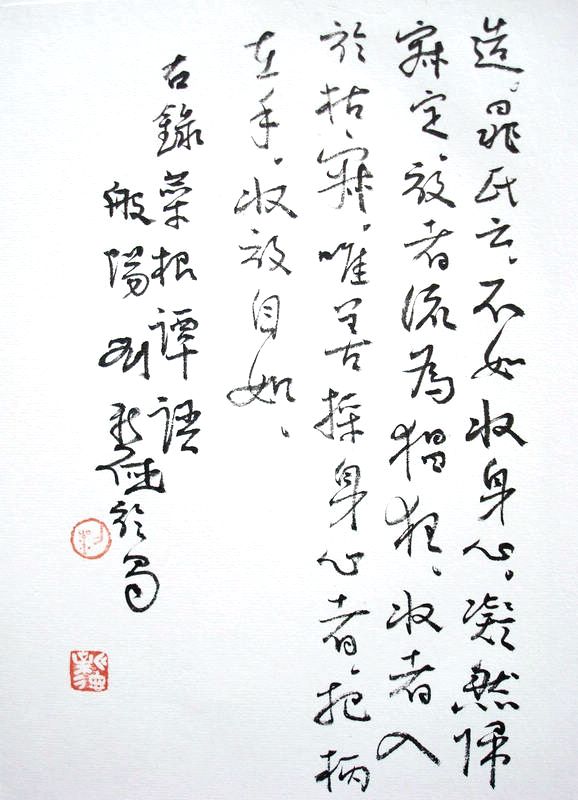 造。晁氏云、不如收身心。凝然歸
寂定放者流為猖狂、收者入
於枯寂。唯善操身心者、把柄
在手。收放自如、
右錄菜根譚語
般陽刘於蜀